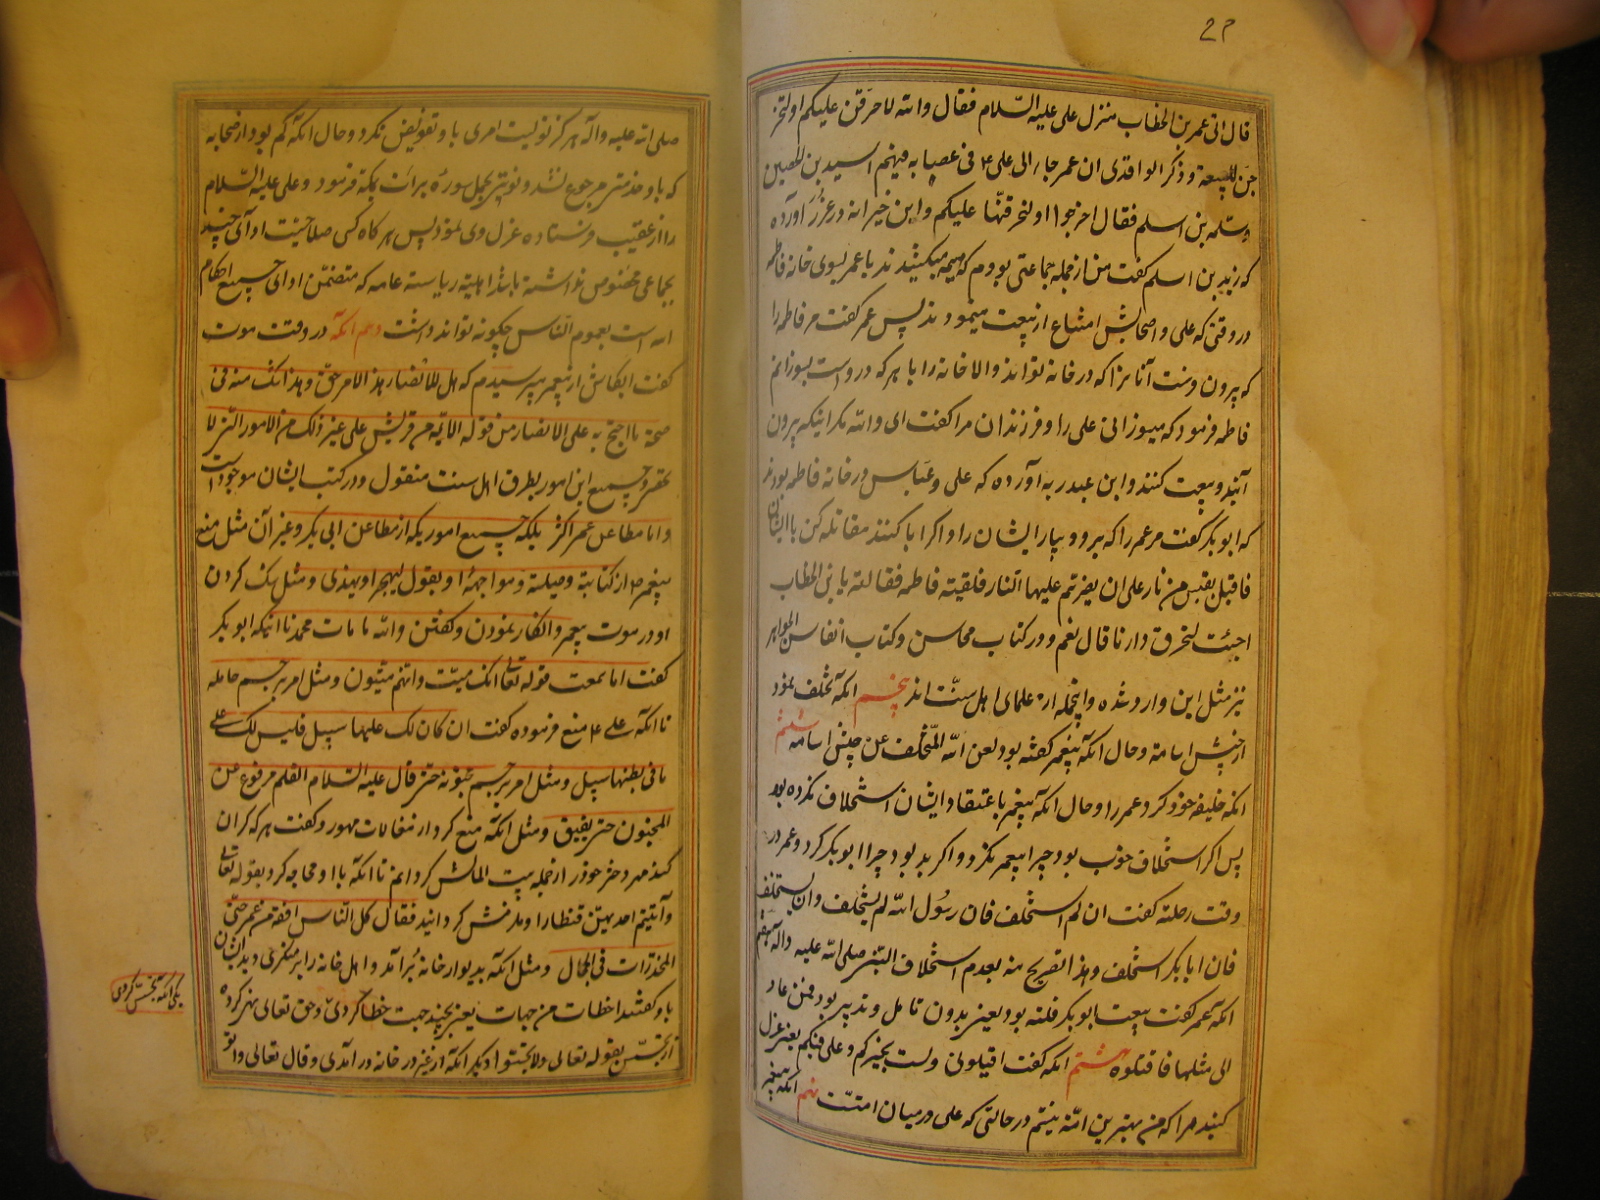 ۲۳
قال اتی عمر بن الخطاب منزل علی علیه السّلام فقال والله لاحرقن علیکم او لتخر
جن للبیعة و ذکر الواقدی ان عمر جاء الی علی ۴ فی عصابه فیهم اسید بن الحصین
و سلمه بن اسلم فقال اخرجوا او لنحرقنّها علیکم و ابن خیرانه در غرر آورده
که زید بن اسلم کفت من از جمله جماعتی بودم که هیمه میکشیدند با عمر بسوی خانه فاطمه
در وقتی که علی و اصحابش امتناع از بیعت مینمودند پس عمر کفت مر فاطمه را
که بیرون کن آنانرا که در خانه تواند و الا خانه را با هر که دروست بسوزانم
فاطمه فرمود که میسوزانی علی را و فرزندان مرا کفت ای والله مکر اینکه بیرون
آیند و بیعت کنند و ابن عبد ربه آورده که علی و عباس در خانه فاطمه بودند
که ابو بکر کفت مر عمر را که برو و بیار ایشان را و اکر ابا کنند مقاتله کن با ایشان
فاقبل بقبس من نار علی ان یضرم علیهما النار فلقیته فاطمه فقالت یا بن الخطاب
اجئت لتحرق دارنا قال نعم و در کتاب محاسن و کتاب انفاس الجواهر
نیز مثل این وارد شده و اینجمله از علمای اهل سنّت اند پنجم انکه تخلف نمود
از جیش اسامة و حال انکه پیغمبر کفته بود لعن الله المتخلف عن جیش اسامه ششم
انکه خلیفه خود کرد عمر را و حال انکه پیغمبر باعتقاد ایشان استخلاف نکرده بود
پس اکر استخلاف خوب بود چرا پیغمبر نکرد و اکر بد بود چرا ابو بکر کرد و عمر در
وقت رحلته کفت ان لم استخلف فان رسول الله لم یستخلف و ان یستخلف
فان ابا بکر استخلف و هذا تصریح منه بعدم استخلاف النبی صلی الله علیه و آله هفتم
انکه عمر کفت بیعت ابو بکر فلته بود یعنی بدون تامل و تدبیر بود فمن عاد
الی مثلها فاقتلوه هشتم انکه کفت اقیلونی و لست بخیرکم و علی فیکم یعنی عزل
کنید مرا که من بهترین امّة نیستم در حالتی که علی در میان امتست نهم انکه پیغمبر
صلی الله علیه و آله هرکز تولیت امری باو تفویض نکرد و حال انکه کم بود از صحابه
که باو خدمتی مرجوع نشد و نوبتی بحمل سوره برائت بمکه فرمود و علی علیه السّلام
را از عقیب فرستاده عزل وی نمود پس هرکاه کسی صلاحیت ادای چند
بجماعی مخصوص نداشته باشد اهلیة ریاسة عامه که متضمّن ادای جمیع احکام
الله است بعموم الناس چکونه تواند داشت دهم انکه در وقت موت
کفت ایکاش از پیغمبر میپرسیدم که هل للانصار هذا الامر حقّ و هذا شک منه فی
صحة ما احتج به علی الانصار من قوله الائمّه من قریش علی غیر ذلک من الامور التی لا
تحصی و جمیع این امور بطرق اهل سنت منقول و در کتب ایشان موجود است
و اما مطاعن عمر اکثر بلکه جمیع امور یکه از مطاعن ابی بکر و غیر آن مثل منع
پیغمبر ۴ از کتابة وصیة و مواجهة او بقول لیهجر او یهذی و مثل شک کردن
او در موت پیغمبر و انکار نمودن و کفتن والله ما مات محمد تا انیکه ابو بکر
کفت اما سمعت قوله تعالی انک میّت و انهم میّتون و مثل امر برجم حامله
تا انکه علی ۴ منع فرموده کفت ان کان لک علیها سبیل فلیس لک علی
ما فی بطنها سبیل و مثل امر برجم مجنونه حتی قال علیه السّلام القلم مرفوع عن
المجنون حتی یفیق و مثل انکه منع کرد از مغالات مهور و کفت هر که کران
کند مهر دختر خود را از جمله بیت المالش کردانم تا انکه با او محاجه کرد بقوله تعالی
و آتیتم احدیهنّ قنطارا و ملزمش کردانید فقال کل الناس افقه من عمر حتی
المخدّرات فی الحجال و مثل انکه بدیوار خانه برآمد و اهل خانه را بر منکری دید ایشان
باو کفتند اخطات من جهات یعنی بچند جهت خطا کردی و حق تعالی نهی کرده
از تجسّس بقوله تعالی و لا تجسّسوا دیکر انکه از غیر در خانه در آمدی و قال تعالی و اتو
یکی انکه تجسس کردی